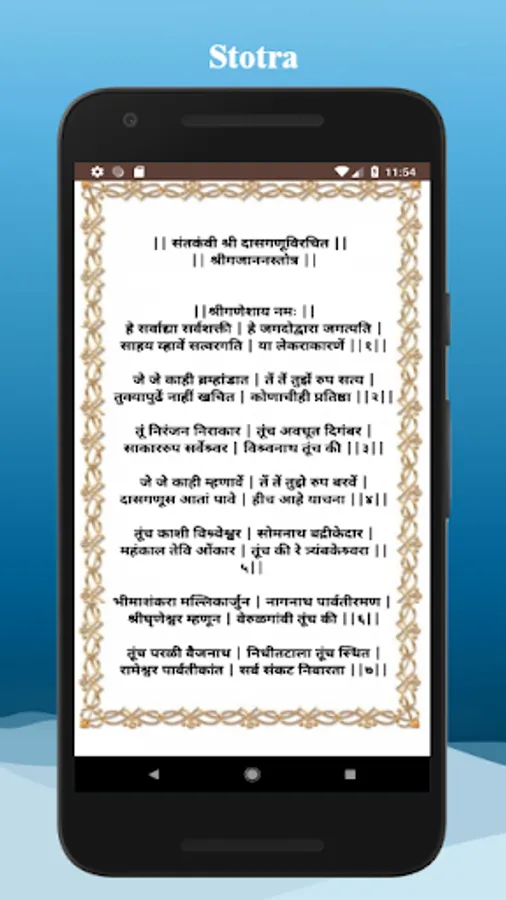 Stotra
11:54
|| संतकंवी श्री दासगणूविरचित ||
|| श्रीगजाननस्तोत्र ||
||श्रीगणेशाय नमः ||
हे सर्वाद्या सर्वशक्ती | हे जगदोद्वारा जगत्पति |
साहय व्हावें सत्वरगति | या लेकराकारणें ||१||
जे जे काही ब्रम्हांडात | तें तें तुझें रुप सत्य |
तुक्यापुढें नाहीं खचित | कोणाचीही प्रतिष्ठा ||२||
तूं निरंजन निराकार | तूंच अवधूत दिगंबर |
साकाररुप सर्वेश्र्वर | विश्र्वनाथ तूंच की ||३||
जे जे काही म्हणावें | तें तें तुझे रुप बरवें |
दासगणूस आतां पावे | हीच आहे याचना ||४||
तूंच काशी विश्र्वेश्वर | सोमनाथ बद्रीकेदार |
महंकाल तेवि ओंकार | तूंच की रे त्र्यंबकेश्र्वरा ||
५||
भीमाशंकरा मल्लिकार्जुन | नागनाथ पार्वतीरमण |
श्रीघृणेश्वर म्हणून | वेरुळगांवी तूंच की ||६||
तूंच परळी वैजनाथ | निधीतटाला तूंच स्थित |
रामेश्वर पार्वतीकांत | सर्व संकट निवारता ||७||